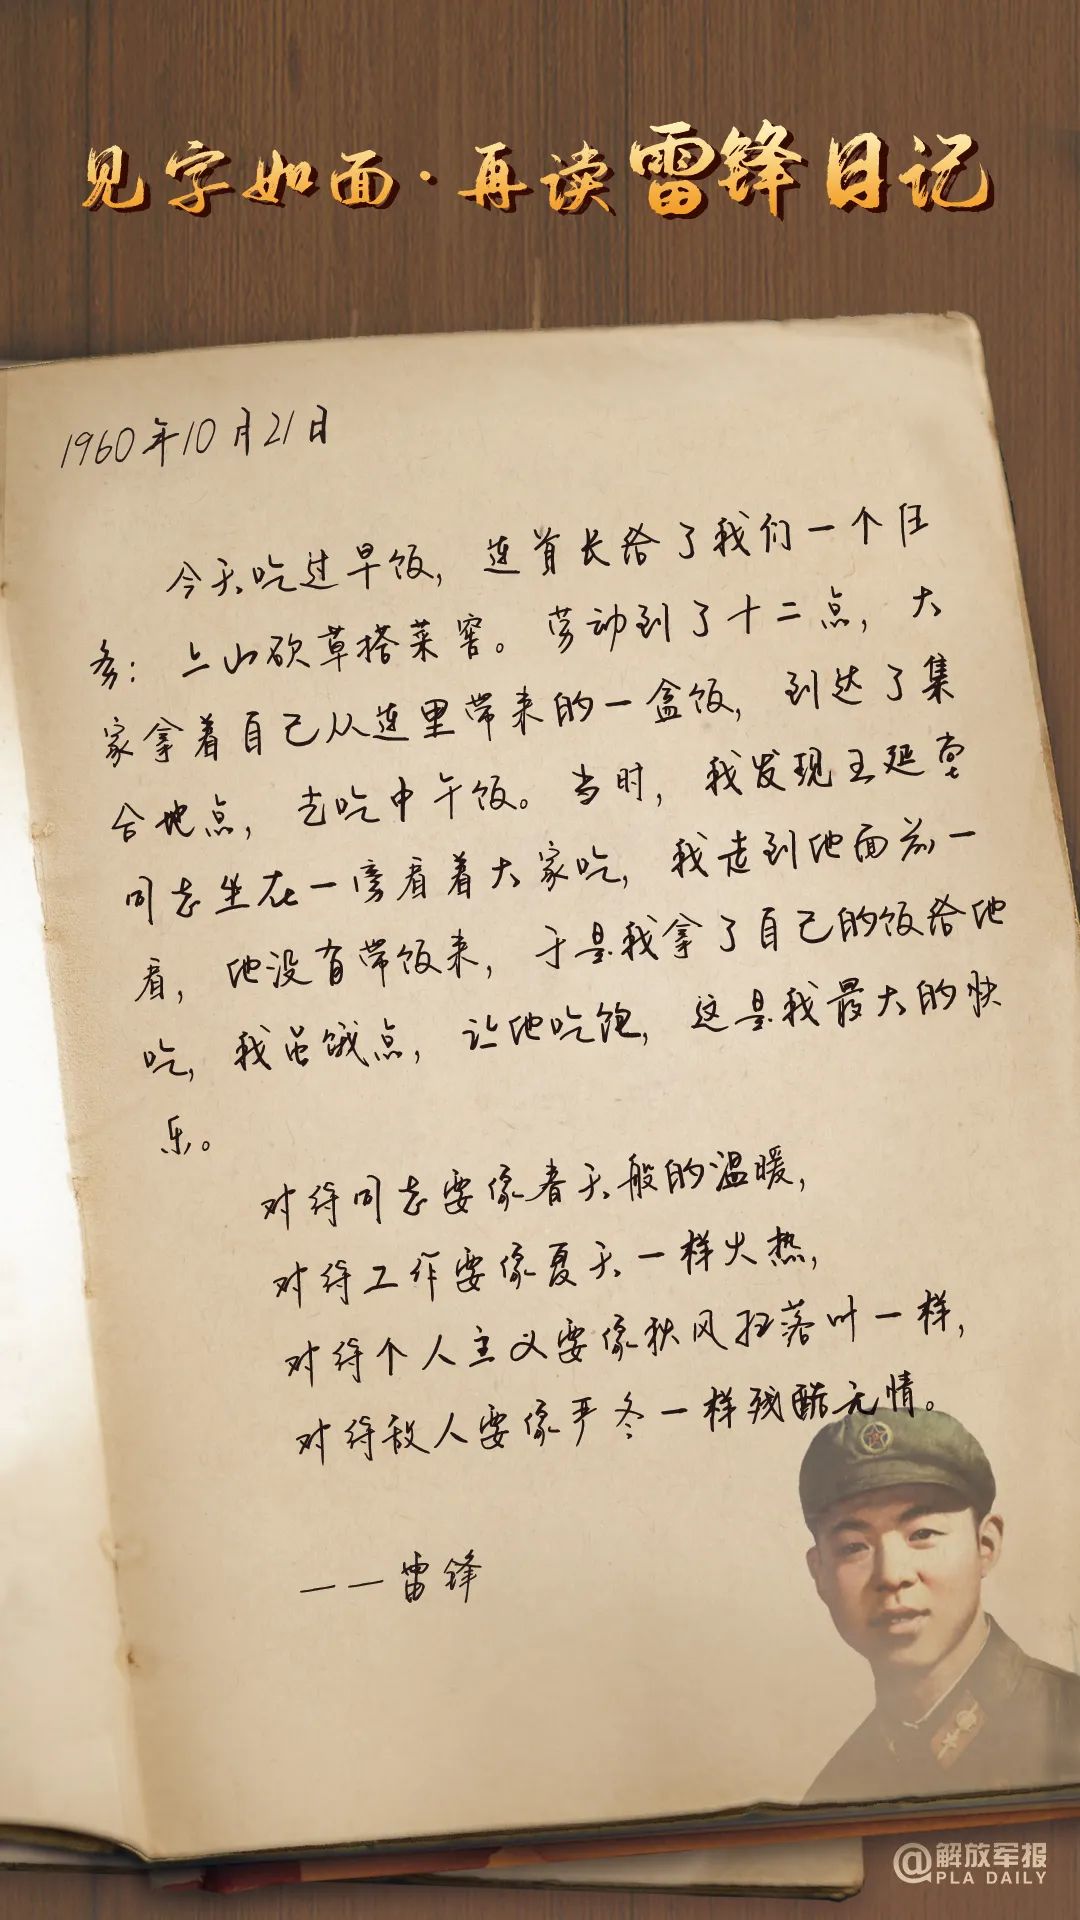 见字如面·再读雷锋日记
1960年10月21日
今天吃过早饭，连首长给了我们一个任
务：上山砍草搭菜窖。劳动到了十二点，大
家拿着自己从连里带来的一盒饭，到达了集
合地点，去吃中午饭。当时，我发现王延堂
同志坐在一旁看着大家吃，我走到他面前一
看，他没有带饭来，于是我拿了自己的饭给他
吃，我虽饿点，让他吃饱，这是我最大的快
乐。
对待同志要像春天般的温暖，
对待工作要像夏天一样火热，
对待个人主义要像秋风扫落叶一样，
对待敌人要像严冬一样残酷无情。
——雷锋
@解放军报
PLA DAILY